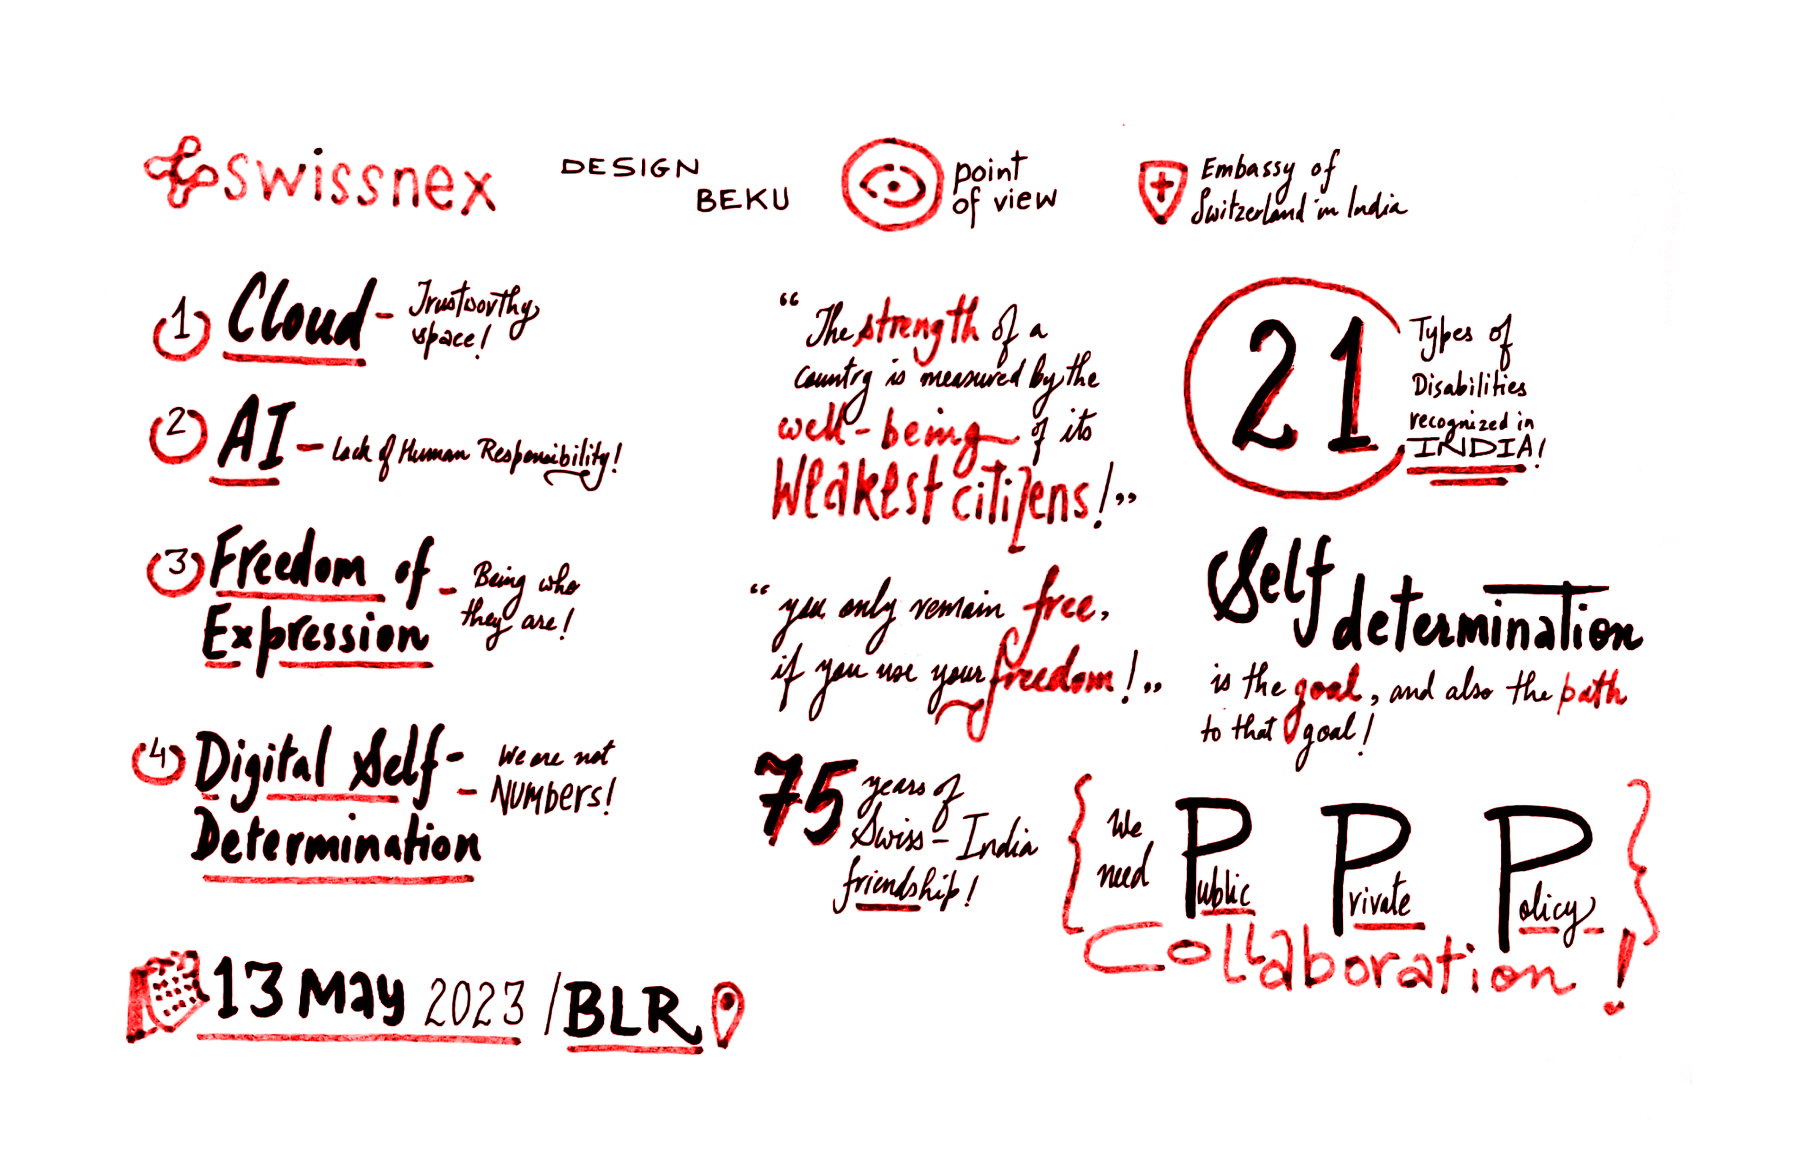 swissnex
DESIGN
BEKU
point
of view
Embassy of
Switzerland in India
1 Cloud - Trustworthy
space!
2 AI - Lack of Human Responsibility!
3 Freedom of
Expression - Being who
they are!
4 Digital Self-
Determination - We are not
NUMBERS!
13 May 2023 / BLR
"The strength of a
country is measured by the
well-being of its
Weakest citizens!"
"you only remain free,
if you use your freedom!"
75 years of
Swiss - India
friendship!
21 Types of
Disabilities
recognized in
INDIA!
Self
determination
is the goal, and also the path
to that goal!
{ We
need Public Private Policy }
Collaboration!